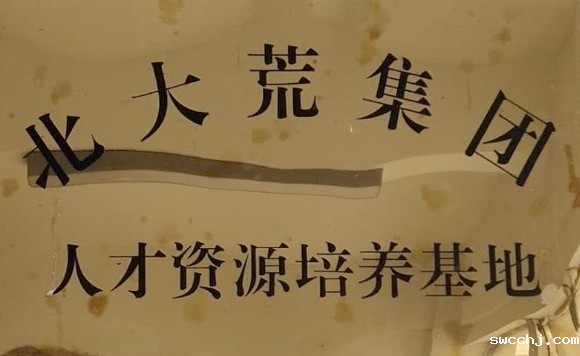 北大荒集团
人才资源培养基地
swcchj.com